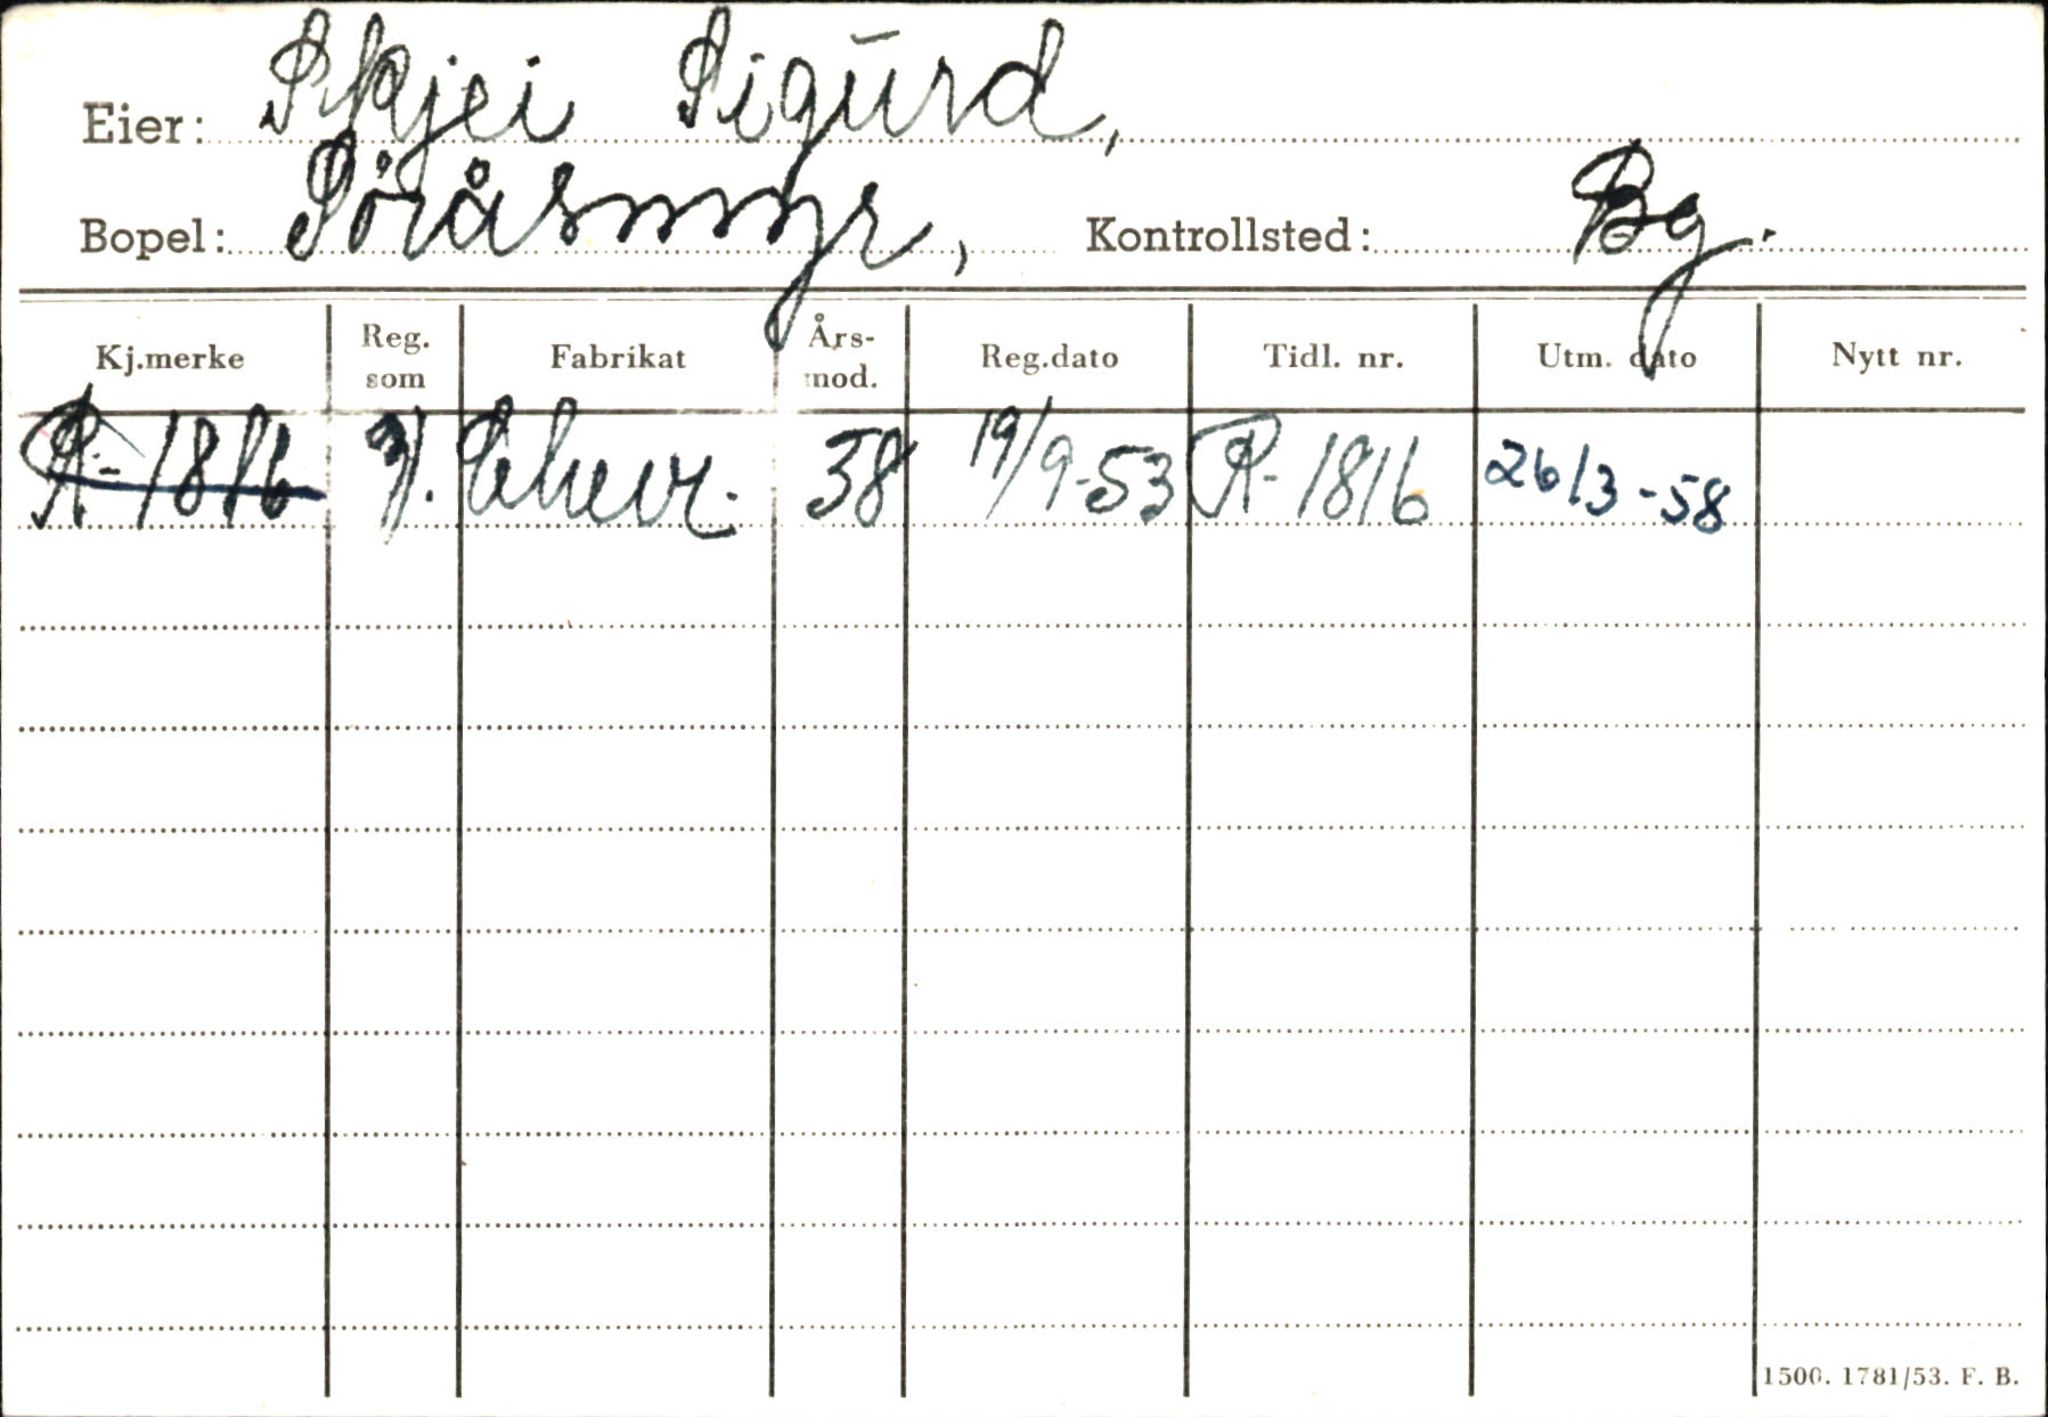 Eier: Skjei Sigurd,
Bopel: Söråsmyr, Kontrollsted: Bg.
Kj.merke Reg. som Fabrikat Års-mod. Reg.dato Tidl. nr. Utm. dato Nytt nr.
R-1816 Chevr. 38 19/9-53 R-1816 26/3-58
1500. 1781/53. F. B.